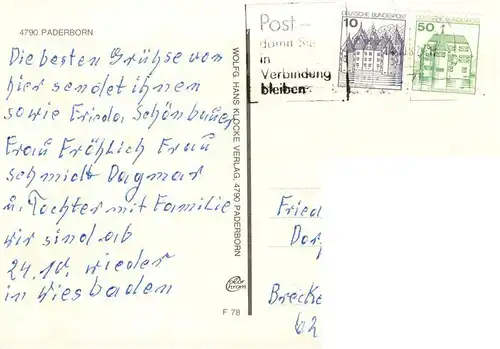 4790 PADERBORN
Die besten Grühse von
hier sendet ihnen
sowie Frieda, Schönbauer
Frau Fröhlich Frau
Schmidt Dagmar
u. Tochter mit Familie
wir sind ab
24.10. wieder
in Wiesbaden
WOLFG. HANS KLOCKE VERLAG, 4790 PADERBORN
color chrom
F 78
Post-
damit Sie
in
Verbindung
bleiben
10 DEUTSCHE BUNDESPOST
50 DEUTSCHE BUNDESPOST
Fried
Dor
Brecke
62